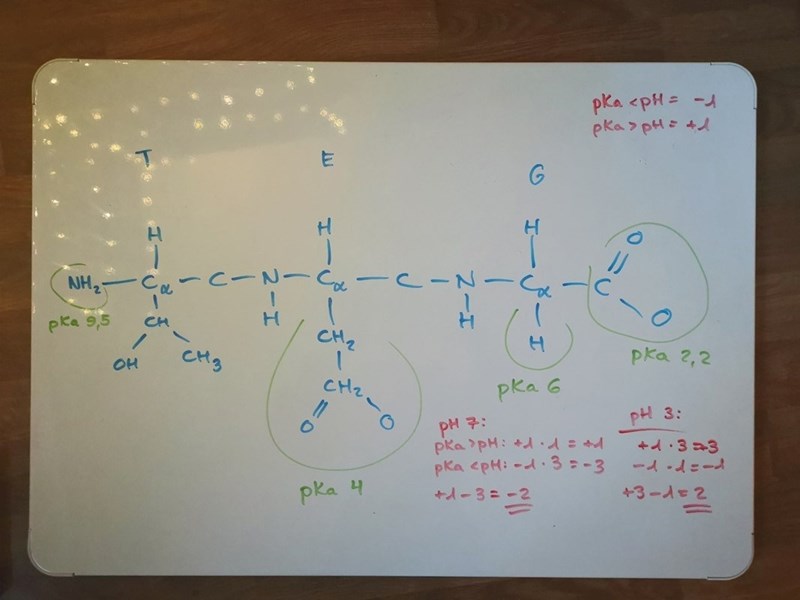 pKa < pH = -1
pKa > pH = +1
T E G
H H H O
NH₂ - Cα - C - N - Cα - C - N - Cα - C
pKa 9,5 CH H CH₂ H H O
OH CH₃ CH₂ pKa 6 pKa 2,2
O O
pKa 4
pH 7:
pKa > pH: +1 · 1 = +1
pKa < pH: -1 · 3 = -3
+1 - 3 = -2
pH 3:
+1 · 3 = 3
-1 · 1 = -1
+3 - 1 = 2